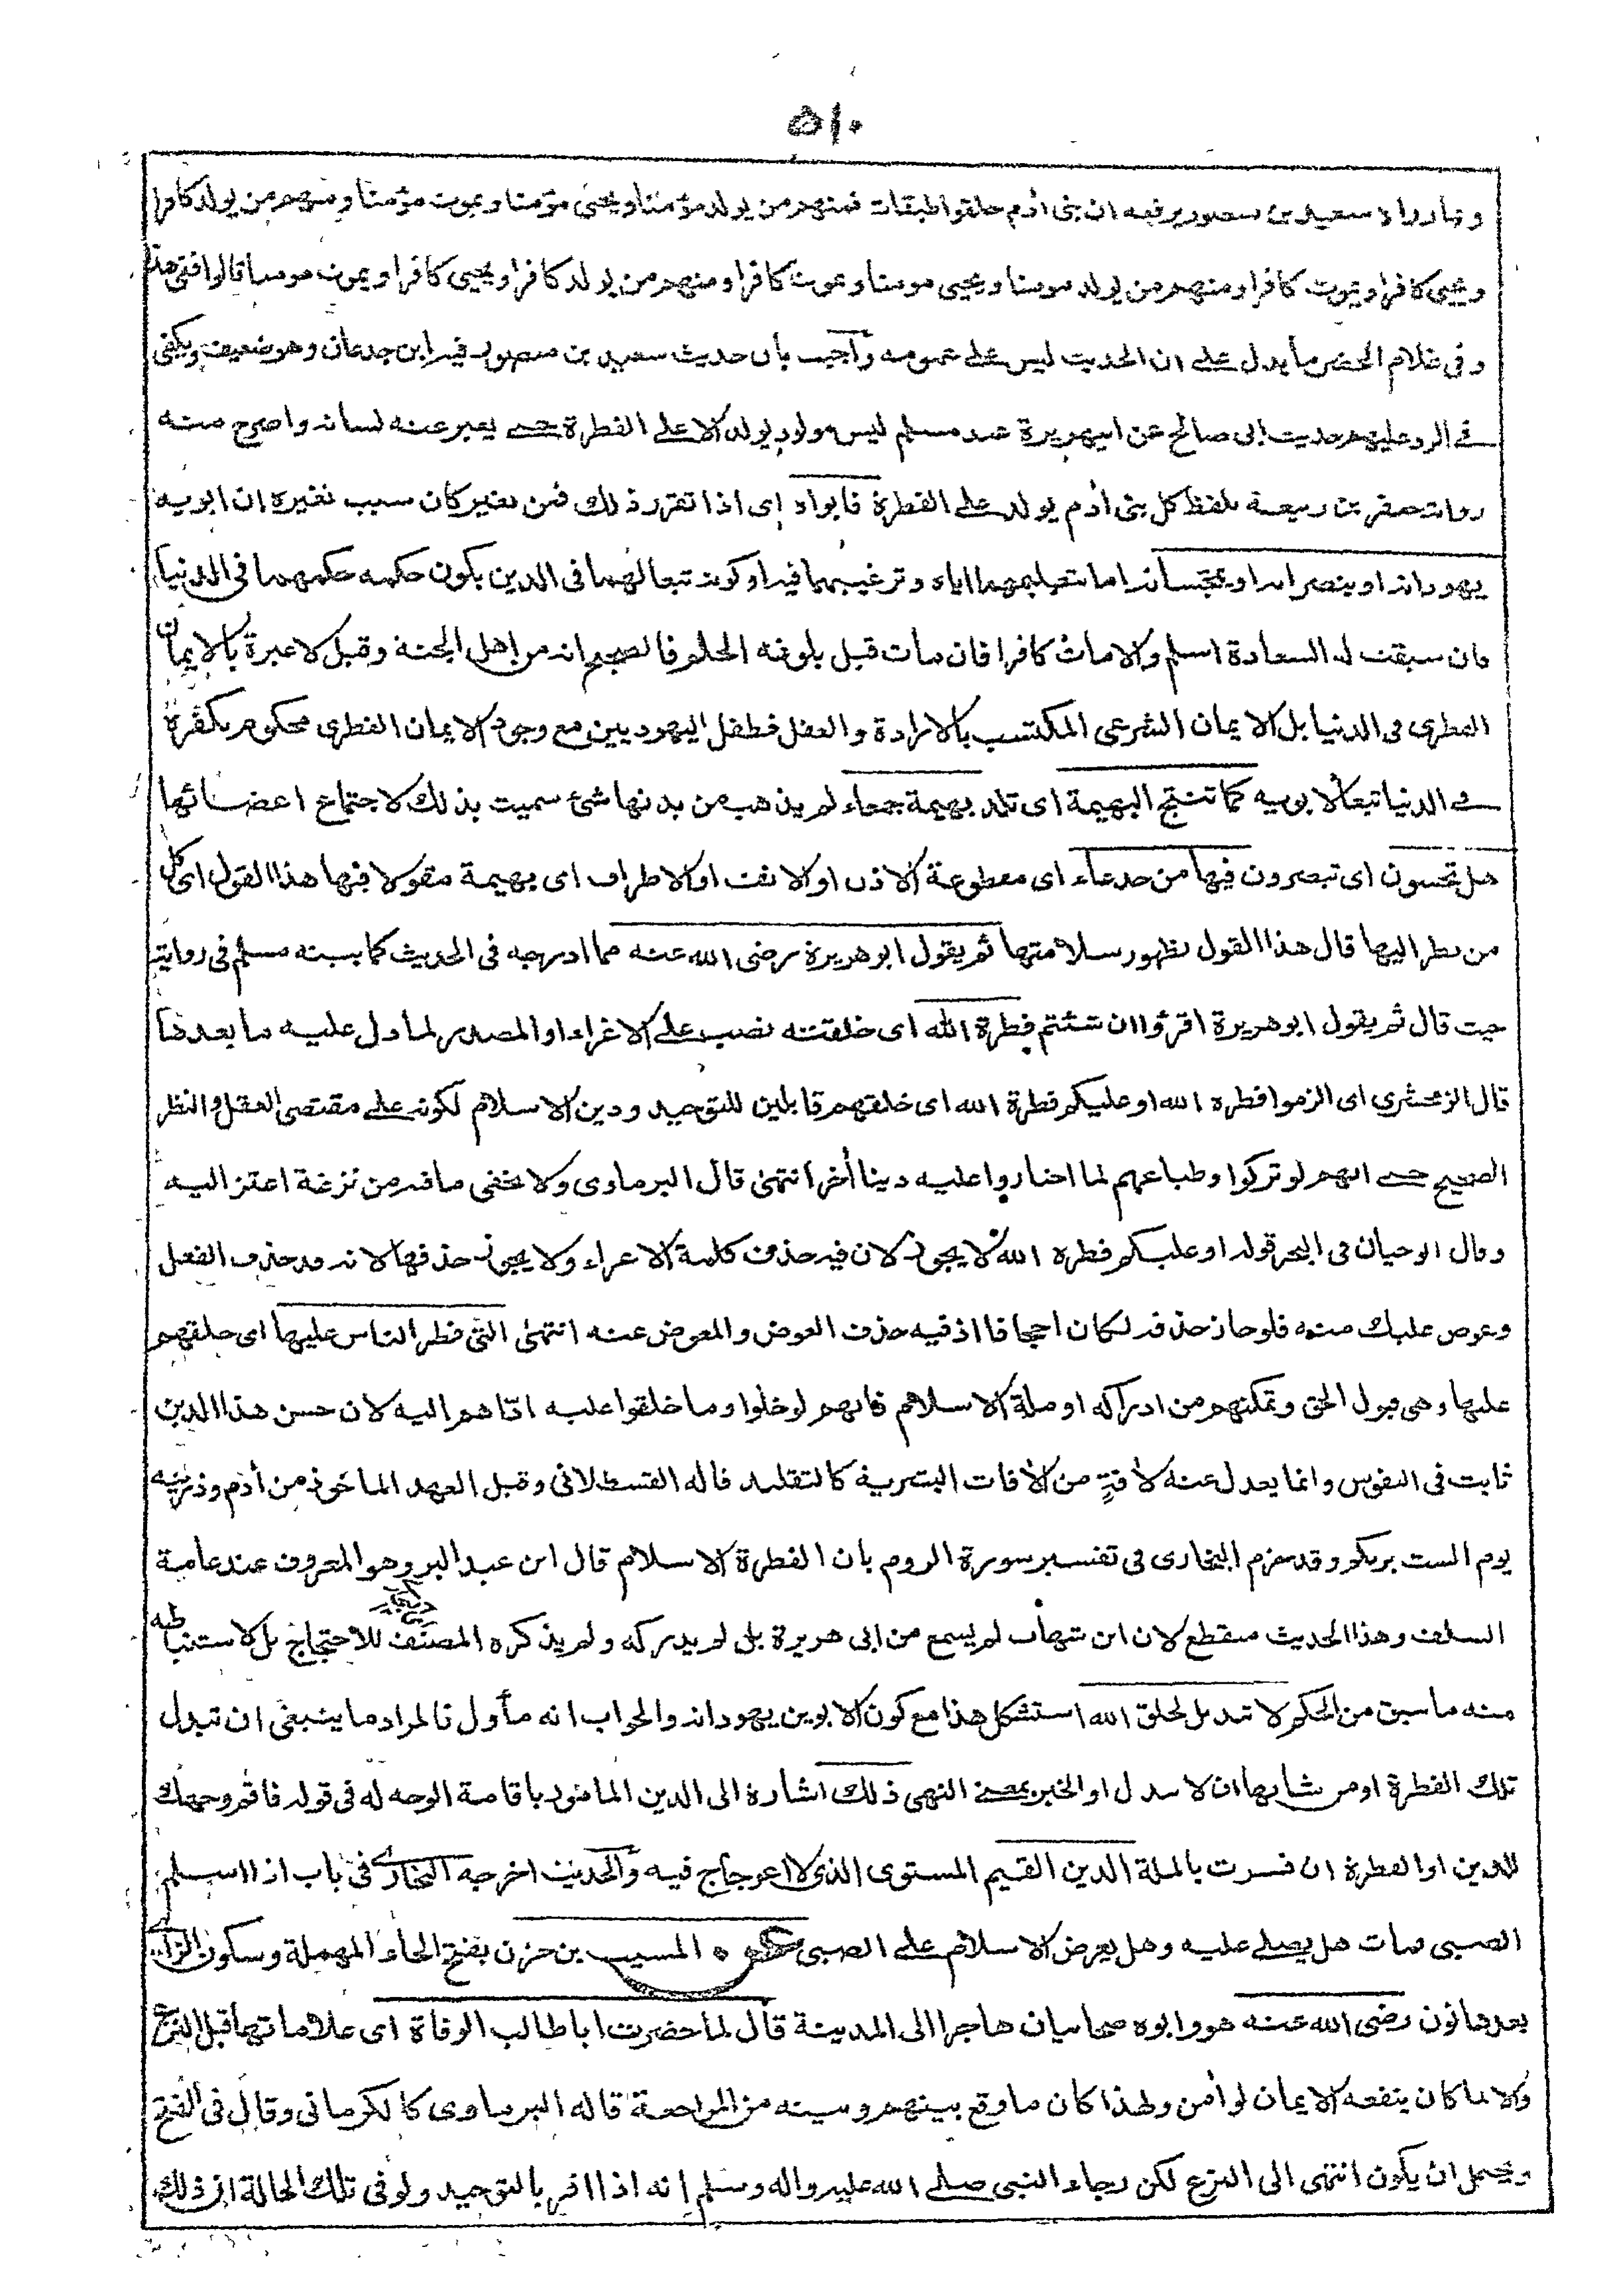 ٥١٠
وبما رواه سعيد بن منصور يرفعه ان بنى أدم خلقوا طبقات فمنهم من يولد مؤمنا ويحيى مؤمنا ويموت مؤمنا ومنهم من يولد كافرا
ويحيى كافرا ويموت كافرا ومنهم من يولد مومنا ويحيى مومنا ويموت كافرا ومنهم من يولد كافرا ويحيى كافرا ويموت مومنا قالوا ففى هذا
وفى غلام الخضر ما يدل على ان الحديث ليس على عمومه وأجيب بان حديث سعيد بن منصور فيه ابن جدعان وهو ضعيف ويكفى
فى الرد عليهم حديث ابى صالح عن ابيهريرة عند مسلم ليس مولود يولد الا على الفطرة حتى يعبر عنه لسانه واصرح منه
رواية جعفر بن ربيعة بلفظ كل بنى أدم يولد على الفطرة فابواه اى اذا تقرر ذلك فمن تغير كان سبب تغيره ان ابويه
يهودانه او ينصرانه او يمجسانه اما بتعليمهما اياه وترغيبهما فيه او كونه تبعا لهما فى الدين يكون حكمه حكمهما فى الدنيا
فان سبقت له السعادة اسلم والا مات كافرا فان مات قبل بلوغه الحلم فالصحيح انه من اهل الجنة وقيل لا عبرة بالايمان
الفطرى فى الدنيا بل الايمان الشرعى المكتسب بالارادة والعقل فطفل اليهوديين مع وجود الايمان الفطرى محكوم بكفره
فى الدنيا تبعا لابويه كما تنتج البهيمة اى تلد بهيمة جمعاء لم يذهب من بدنها شئ سميت بذلك لاجتماع اعضائها
هل تحسون اى تبصرون فيها من جدعاء اى مقطوعة الاذن او الانف او الاطراف اى بهيمة مقولا فيها هذا القول اى كل
من نظر اليها قال هذا القول لظهور سلامتها ثم يقول ابو هريرة رضى الله عنه مما ادرجه فى الحديث كما بينه مسلم فى رواية
حيث قال ثم يقول ابو هريرة اقرؤا ان شئتم فطرة الله اى خلقته نصب على الاغراء او المصدر لما دل عليه ما بعدها
قال الزمخشرى اى الزموا فطرة الله او عليكم فطرة الله اى خلقهم قابلين للتوحيد ودين الاسلام لكونه على مقتضى العقل والنظر
الصحيح حتى انهم لو تركوا وطباعهم لما اختاروا عليه دينا أخر انتهى قال البرماوى ولا يخفى ما فيه من نزغة اعتزاليه
وقال ابو حيان فى البحر قوله او عليكم فطرة الله لا يجوز لان فيه حذف كلمة الاغراء ولا يجوز حذفها لانه قد حذف الفعل
وعوض عليك منه فلو جاز حذفه لكان اجحافا اذ فيه حذف العوض والمعوض عنه انتهى التى فطر الناس عليها اى خلقهم
عليها وهى قبول الحق وتمكنهم من ادراكه او ملة الاسلام فانهم لو خلوا وما خلقوا عليه ادّاهم اليه لان حسن هذا الدين
ثابت فى النفوس وانما يعدل عنه لأفةٍ من الأفات البشرية كالتقليد قاله القسطلانى وقيل العهد الماخوذ من أدم وذريته
يوم الست بربكم وقد جزم البخارى فى تفسير سورة الروم بان الفطرة الاسلام قال ابن عبد البر وهو المعروف عند عامة
السلف وهذا الحديث منقطع لان ابن شهاب لم يسمع من ابى هريرة بل لم يدركه ولم يذكره المصنف للاحتجاج بل لاستنباطه
منه ما سبق من الحكم لا تبديل لخلق الله استشكل هذا مع كون الابوين يهودانه والجواب انه مأول فالمراد ما ينبغى ان تبدل
تلك الفطرة او من شانها ان لا تبدل او الخبر بمعنى النهى ذلك اشارة الى الدين المامور باقامة الوجه له فى قوله فاقم وجهك
للدين او الفطرة ان فسرت بالملة الدين القيم المستوى الذى لا اعوجاج فيه والحديث اخرجه البخارى فى باب اذا اسلم
الصبى فمات هل يصلى عليه وهل يعرض الاسلام على الصبى عن المسيب بن حزن بفتح الحاء المهملة وسكون الزاى
بعدها نون رضى الله عنه هو وابوه صحابيان هاجرا الى المدينة قال لما حضرت ابا طالب الوفاة اى علاماتها قبل النزع
والا لما كان ينفعه الايمان لو أمن ولهذا كان ما وقع بينهم وبينه من المراجعة قاله البرماوى كالكرمانى وقال فى الفتح
ويحتمل ان يكون انتهى الى النزع لكن رجاء النبى صلى الله عليه واله وسلم انه اذا اقر بالتوحيد ولو فى تلك الحالة ان ذلك